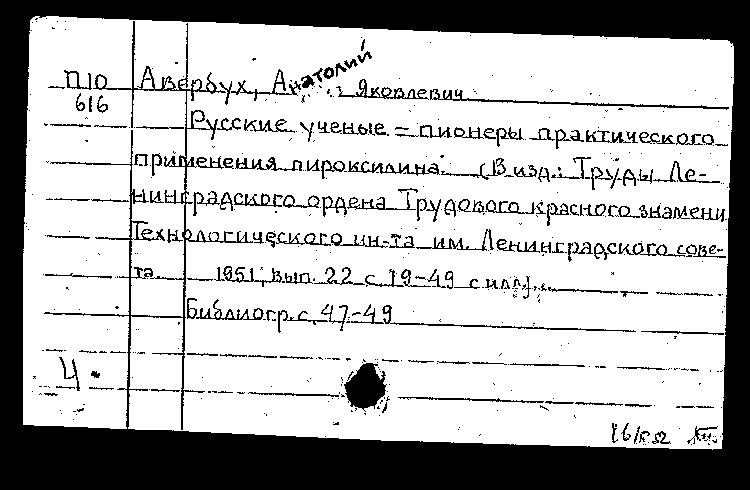 П10 Авербух, Анатолий Яковлевич
616
Русские ученые = пионеры практического
применения пироксилина. (В изд.: Труды Ле-
нинградского ордена Трудового красного знамени
Технологического ин-та им. Ленинградского сове-
та. 1951, вып. 22 с. 19-49 с илл.).
Библиогр. с. 47-49
Ч